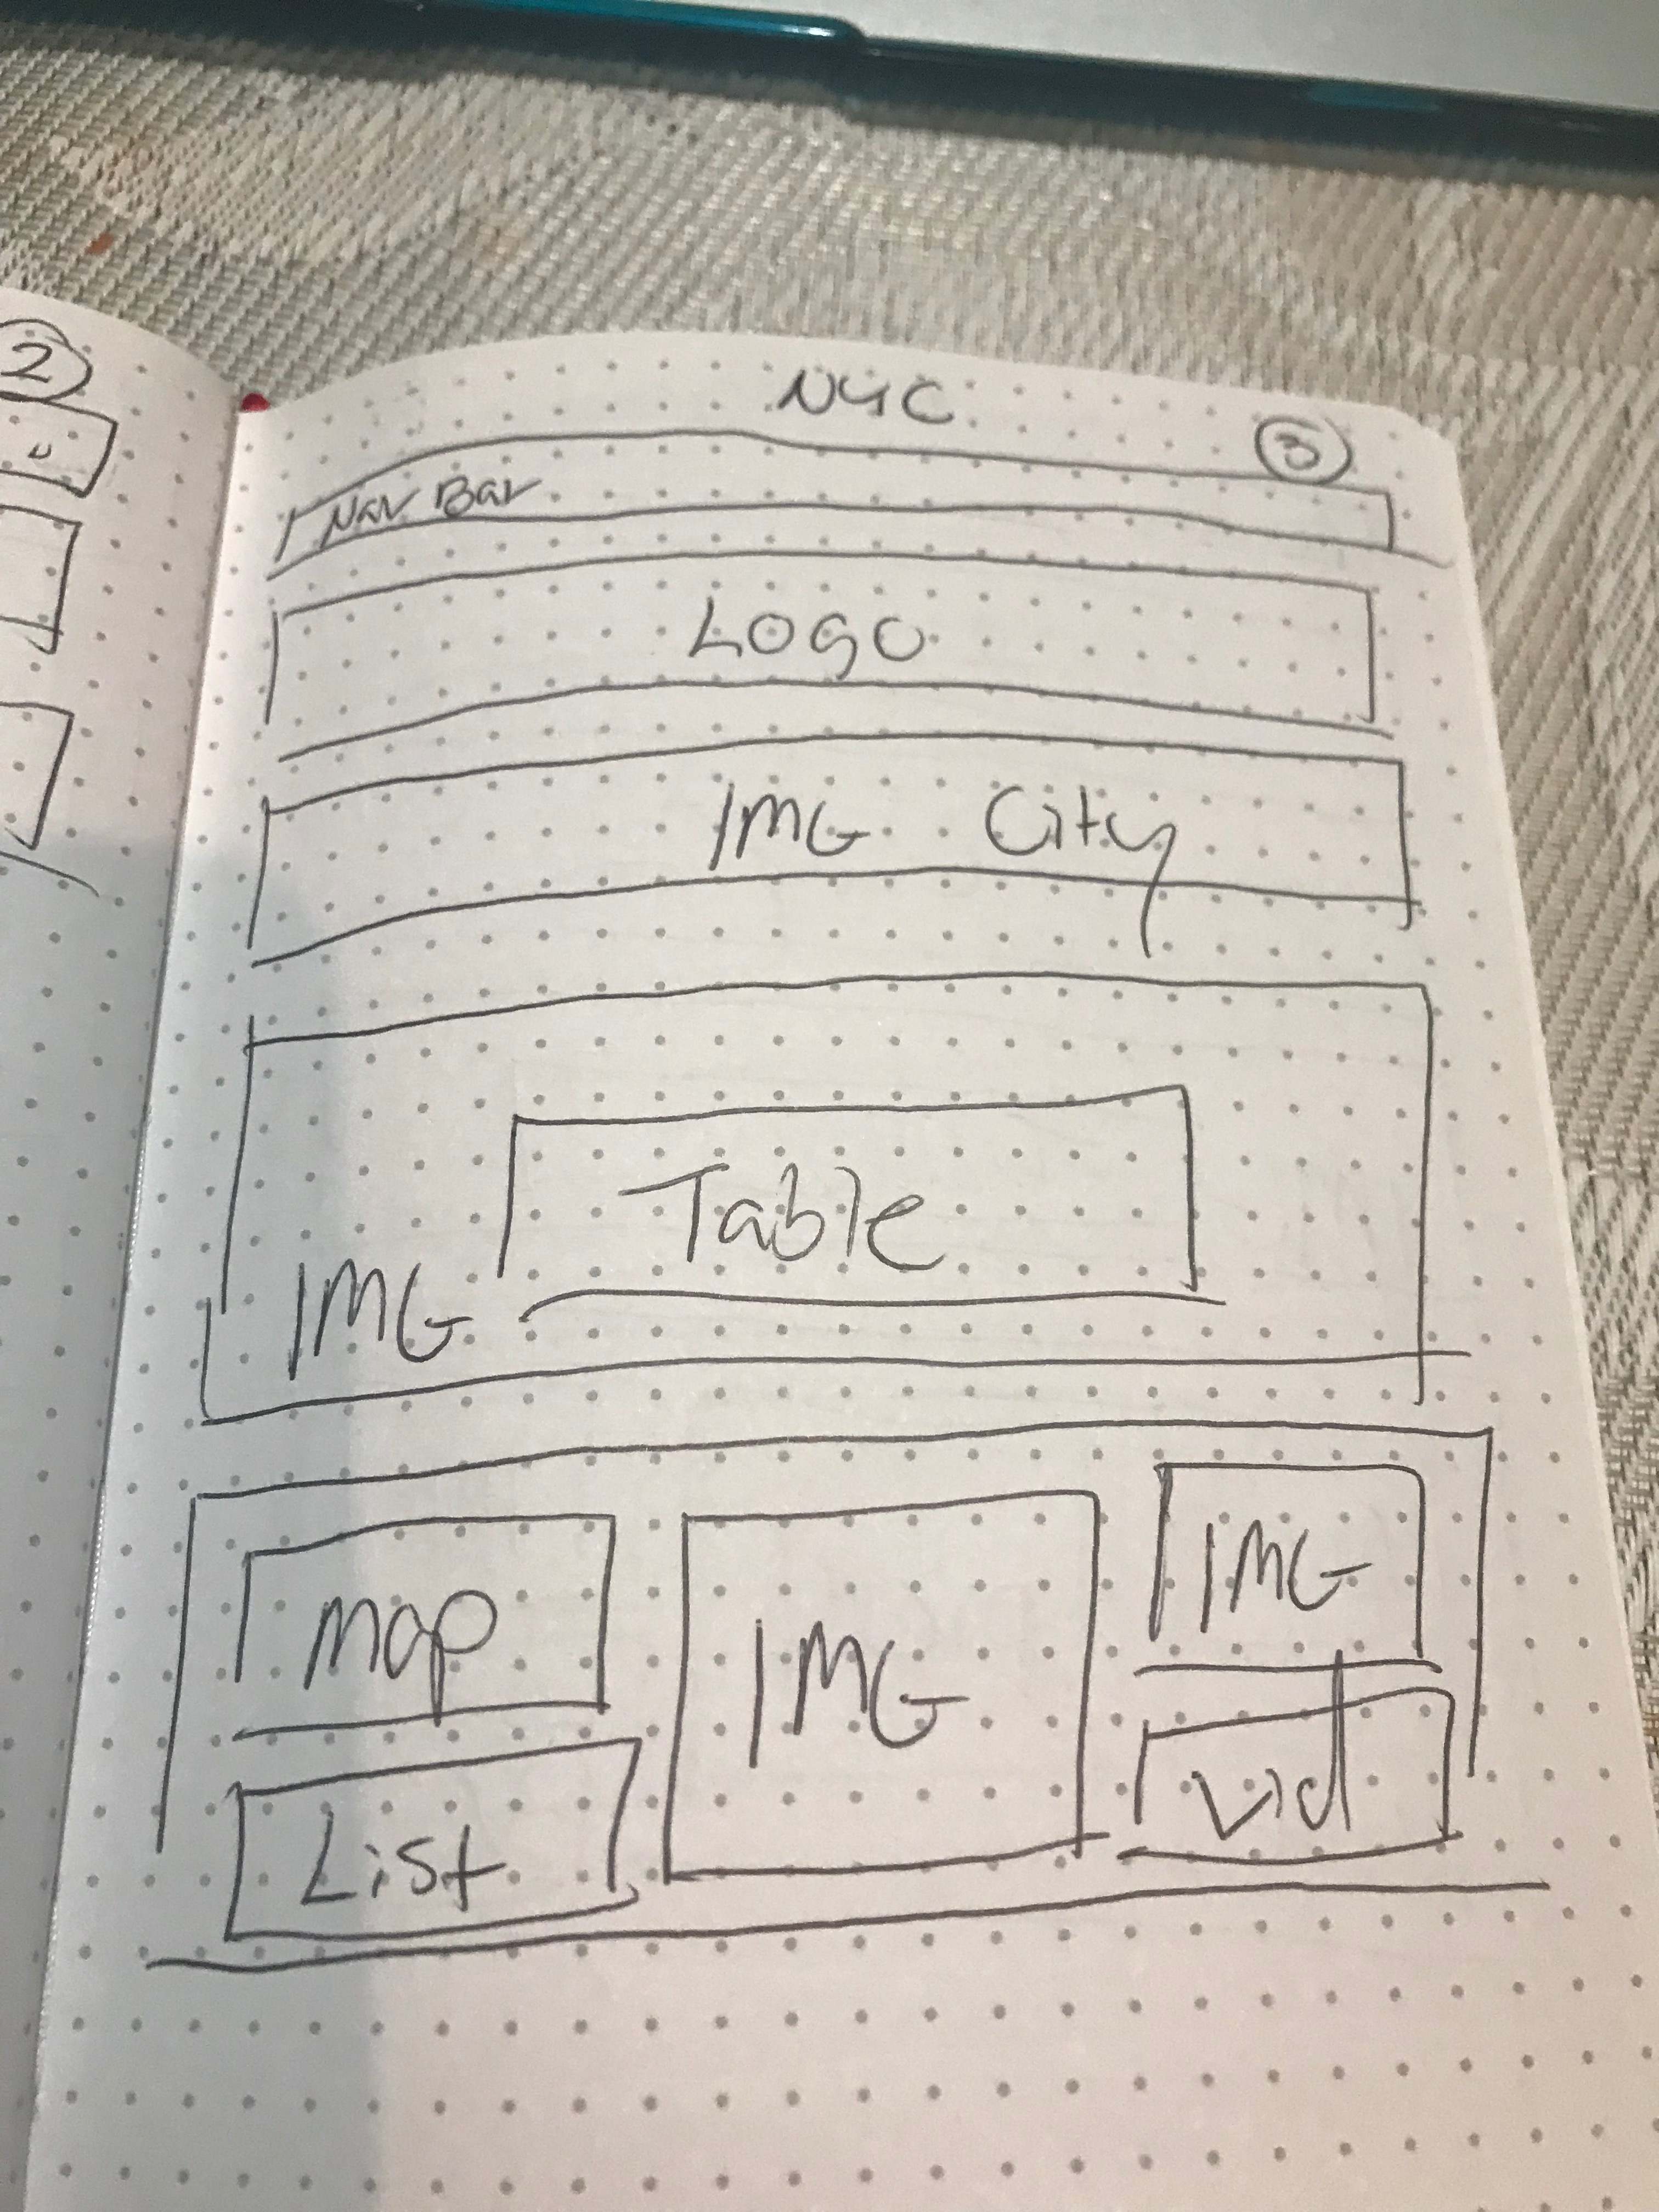 2
NYC
3
Nav Bar
Logo
IMG City
Table
IMG
Map
IMG
IMG
List
Vid